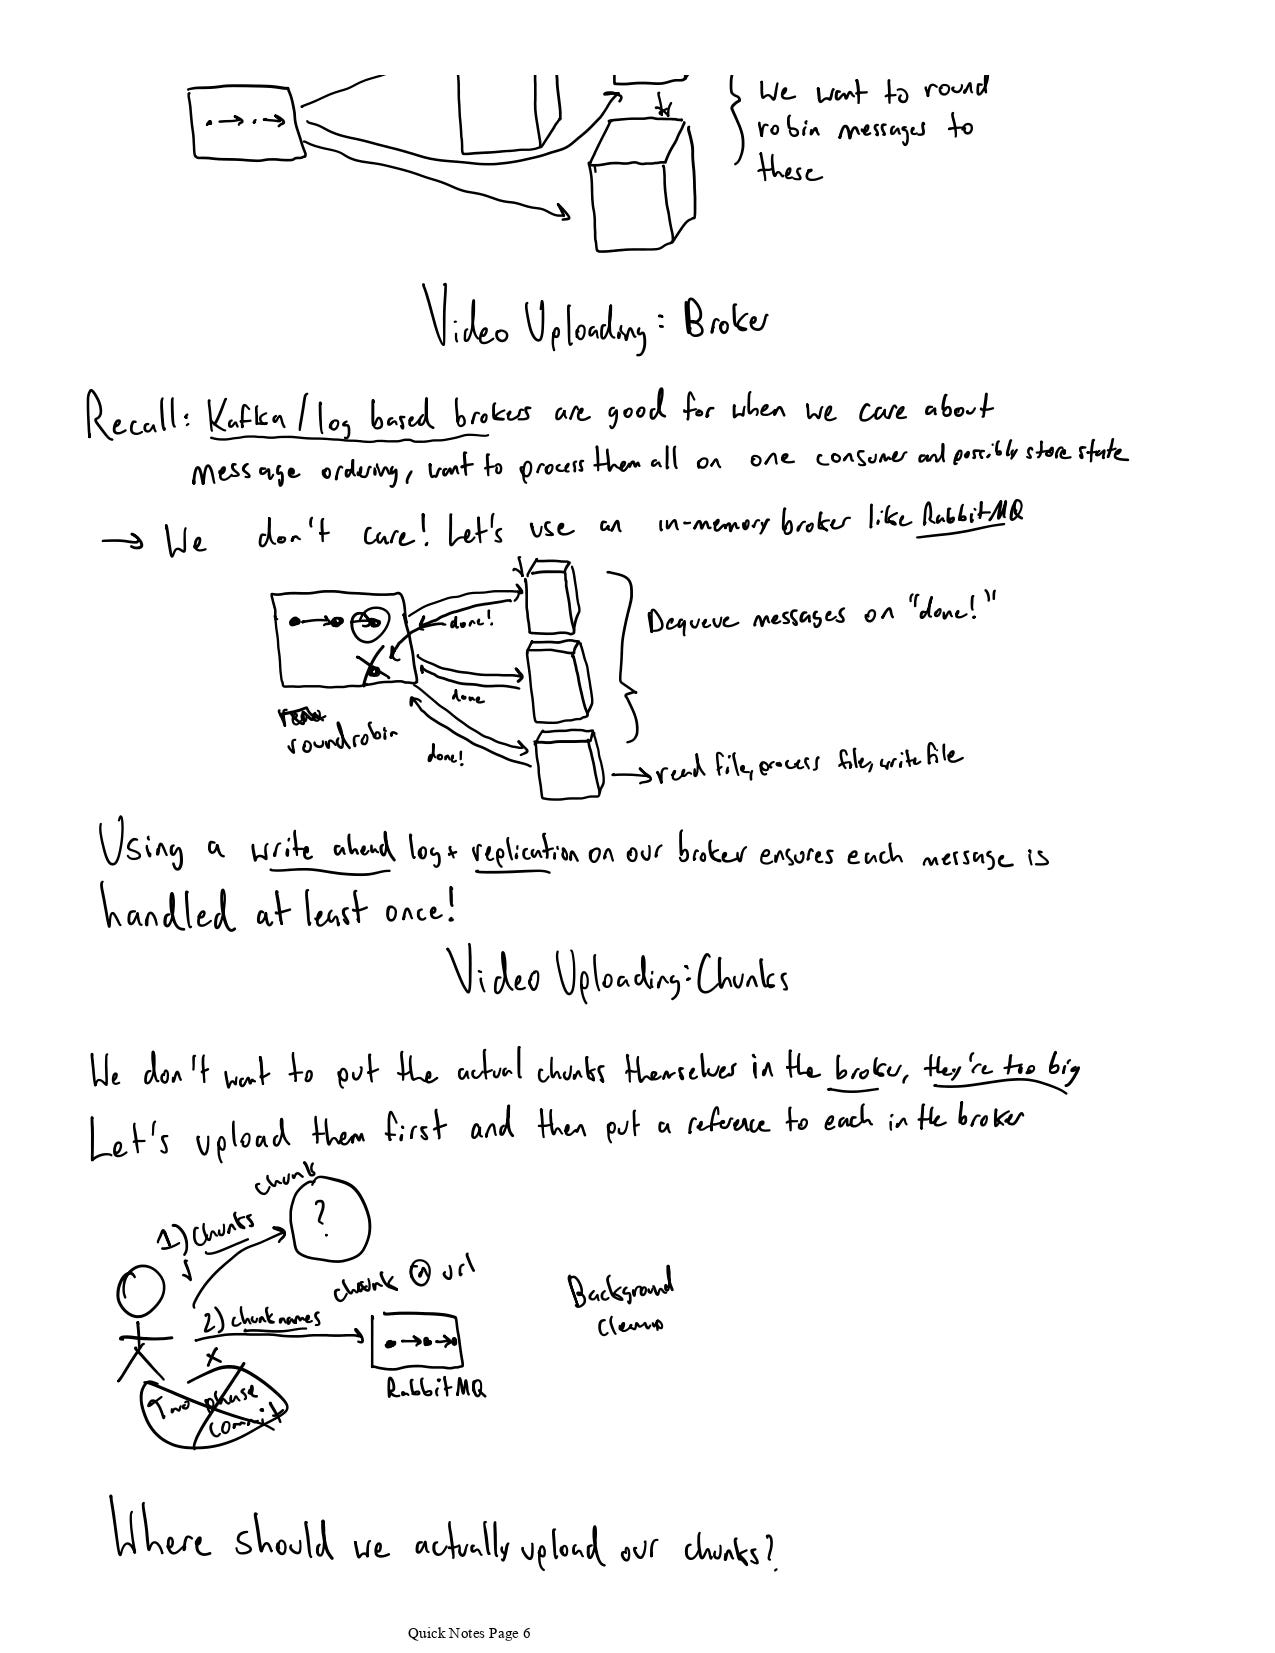 We want to round
robin messages to
these
Video Uploading: Broker
Recall: Kafka/log based brokers are good for when we care about
message ordering, want to process them all on one consumer and possibly store state
→ We don't care! Let's use an in-memory broker like RabbitMQ
done!
Dequeue messages on "done!"
done
round robin
done!
→ read file, process file, write file
Using a write ahead log + replication on our broker ensures each message is
handled at least once!
Video Uploading: Chunks
We don't want to put the actual chunks themselves in the broker, they're too big
Let's upload them first and then put a reference to each in the broker
chunk
1) Chunks
?
chunk @ url
Background
cleanup
2) chunk names
x
RabbitMQ
Two phase
commit
Where should we actually upload our chunks?
Quick Notes Page 6